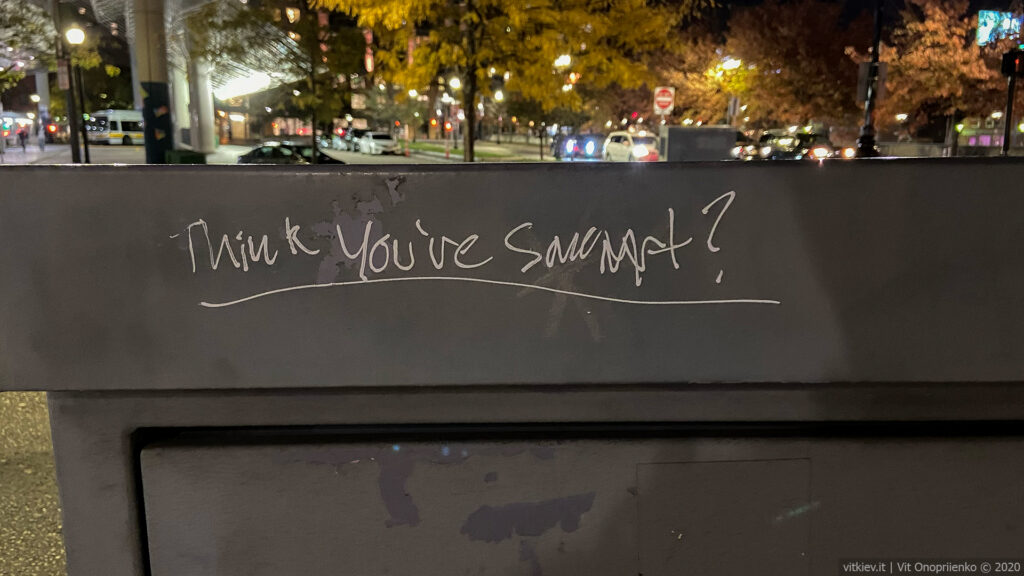 Think You've Smart?
vitkiev.it | Vit Onopriienko © 2020